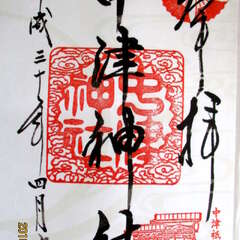 奉拝
中津神社
平成三十年四月
中津神社
中津祇
201